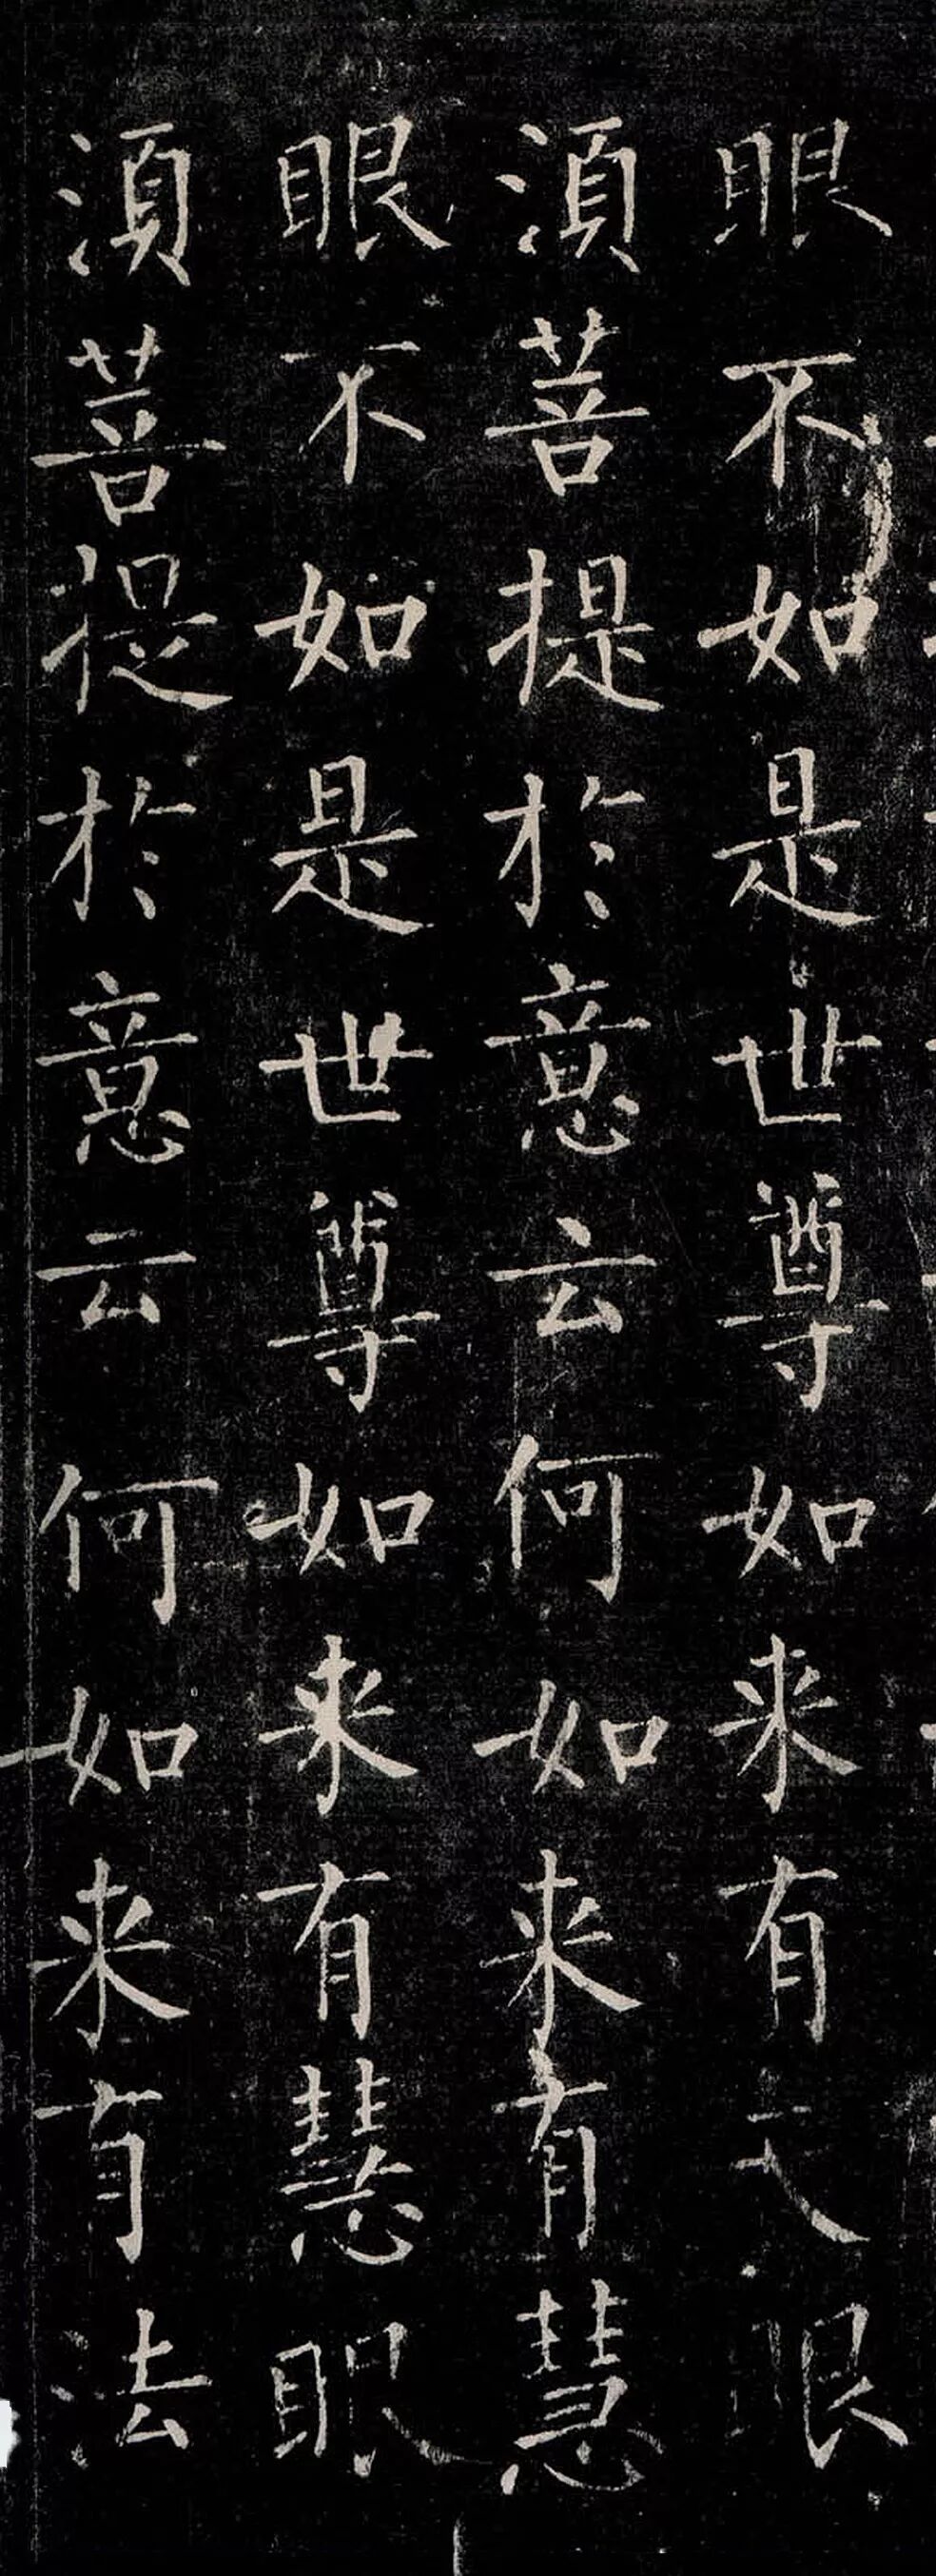 眼不如是世尊如来有天眼
湏菩提於意云何如来有慧
眼不如是世尊如来有慧眼
湏菩提於意云何如来有法